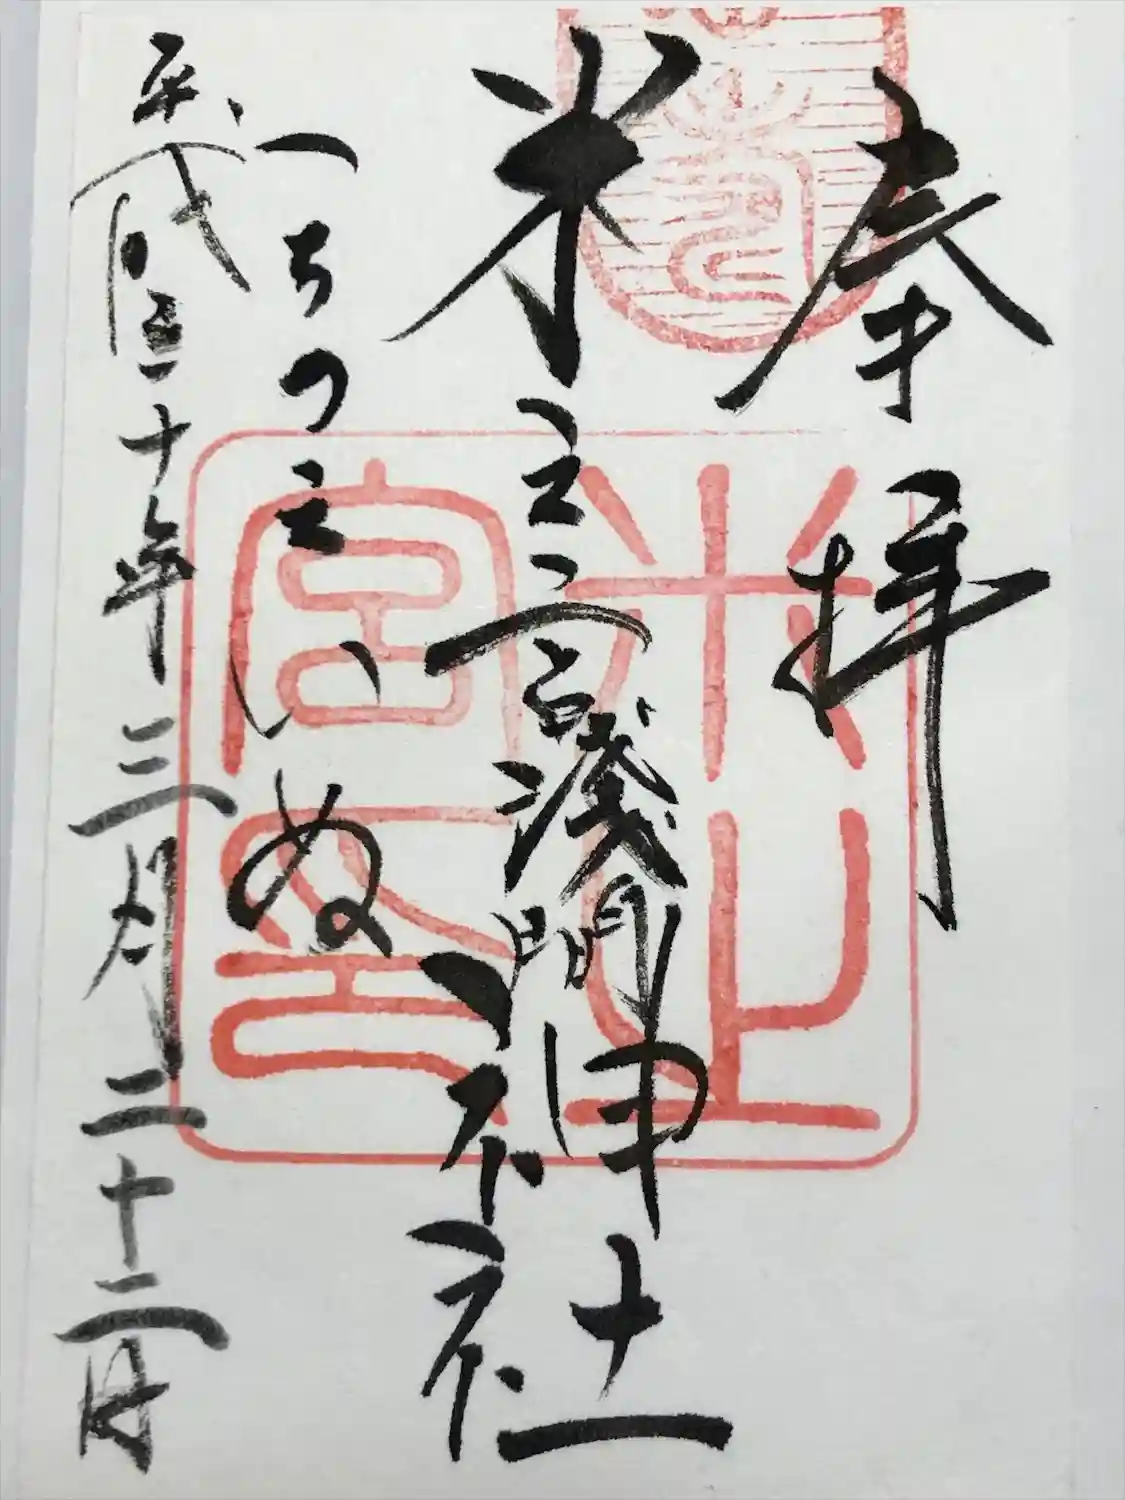 奉拝
米之宮淺間神社
つちのえいぬ
平成三十年三月二十二日
米之宮印